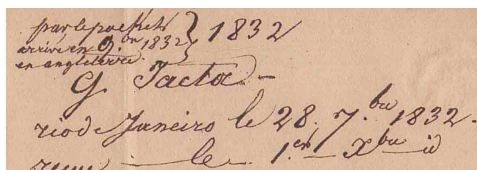 par le packet } 1832
arrivé en 9.bre 1832
en angleterre.
G Jacta -
rio de Janeiro le 28. 7.bre 1832 -
le 1.er Xbre id